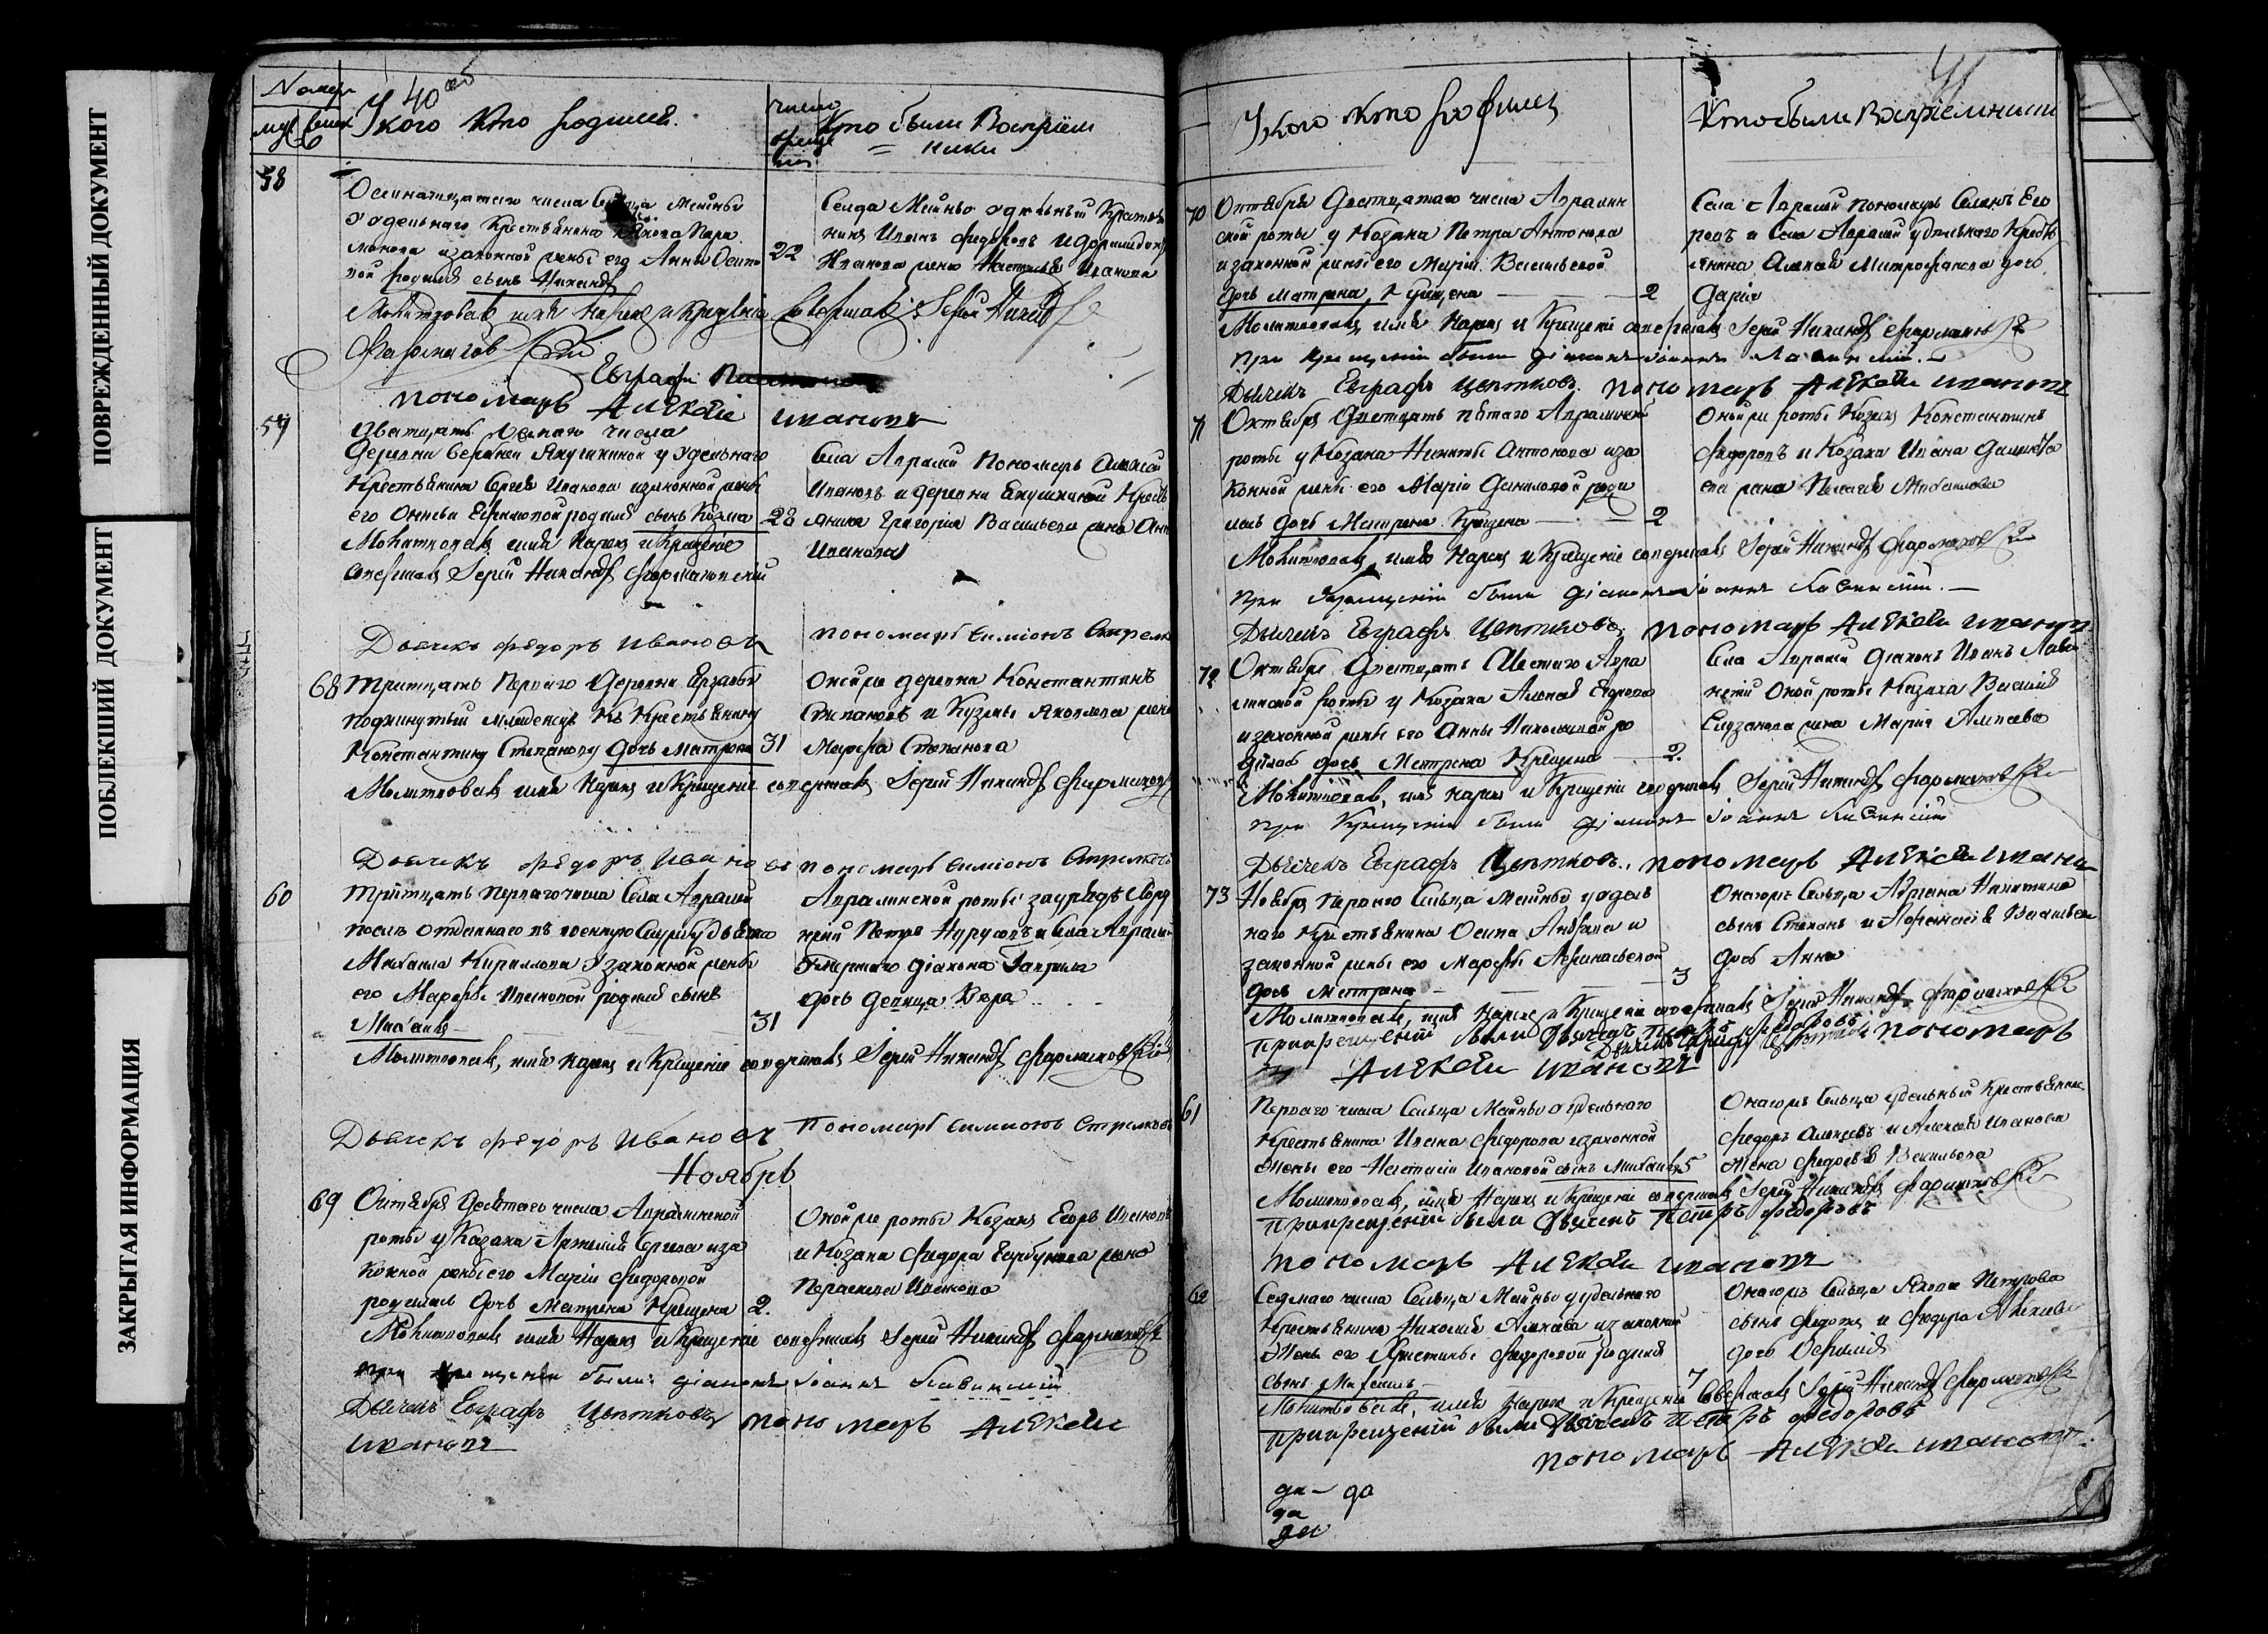 ПОВРЕЖДЕННЫЙ ДОКУМЕНТ
ПОБЛЕКШИЙ ДОКУМЕНТ
ЗАКРЫТАЯ ИНФОРМАЦИЯ
40
У кого Кто родился.
Кто были Воспріем
ники
58
Осмнатцатаго числа Сельца Мейны
удельнаго Крестьянина Якова Пара
монова изаконной жены его Анны Осипо
вой родился сынъ Никандр
22
Сельца Мейны удельный Крестья
нинъ Иванъ Федоровъ
Иванова жена Настасья Иванова
Молитвовалъ имя нарекъ и Крещеніе Совершалъ Іерей Никандръ
Фармаковъ
Евграфъ
пономарь Алексѣй ивановъ
59
Дватцать числа
Деревни Верхней Якушкиной у Удельнаго
Крестьянина Сергея Иванова изаконной жены
его Ефимовой родился сынъ Козма 28
Села Авралей Пономарь Алексей
Ивановъ и деревни Якушкиной Кресть
янина Григорія Васильева жена Анна
Иванова
Молитвовалъ имя Нарекъ и Крещеніе
совершалъ Іерей Никандръ Фармаковскій
Дьячекъ Федоръ Ивановъ
пономарь Симіонъ Стрелков
68 Тритцать Перваго Деревни
подкинутый младенецъ Къ Крестьянину
Константину Степанову дочь матрона 31
Оной же деревни Константинъ
Степановъ и Кузмы Яковлева жена
Марфа Степанова
Молитвовалъ имя Нарекъ и Крещеніе совершалъ Іерей Никандръ Фармаков
Дьячекъ Федоръ Ивановъ пономарь Симіонъ Стрелков
60
Тритцать перваго числа Села Авралей
послѣ отданнаго въ военную Службу
Михаила Кирилова У законной жены
его Марфы Ивановой родился сынъ
Михаилъ 31
Авралинской роты заурядъ
Петръ и Села Авралей
Умершаго діакона Гаврила
дочь девица Вера
Молитвовалъ, имя нарекъ и Крещеніе совершалъ Іерей Никандръ Фармаковскій
Дьячекъ Федоръ Ивановъ Пономарь Симионъ Стрелков
Ноябрь
69 Октября Десятаго числа Авралинской
роты у Казака Артемія Сергеева иза
конной жены его Маріи Федоровой
родилась дочь Матрена Крещена 2.
Оной же роты Казакъ Егоръ Ивановъ
и Козака Федора жена
Парасковья Иванова
Молитвовалъ имя Нарекъ и Крещеніе совершалъ Іерей Никандръ Фармаковскій
при крещеніи были: діаконъ Іоаннъ Лавинскій
Дьячекъ Евграфъ Цветковъ пономарь Алексѣй
ивановъ
41
У кого кто родился
Кто были Воспріемники
70 Октября Дватцатаго числа Авралин
ской роты у Козака Петра Антонова
и законной жены его Маріи Васильевой
дочь матрена, Крещена 2
Села Авралей пономарь Симіонъ Его
ровъ и Села Авралей удельнаго Кресть
янина Алексея Митрофанова дочь
Дарія
Молитвовалъ имя Нарекъ и Крещеніе совершалъ Іерей Никандръ Фармаковскій
при крещеніи были діаконъ Іоаннъ Лавинскій.
Дьячекъ Евграфъ Цветковъ. пономарь Алексѣй ивановъ
71 Октября Дватцать пятаго Авралинской
роты у Козака Никиты Антонова иза
конной жены его Маріи Даниловой роди
лась дочь Матрена Крещена 2
Оной же роты Козакъ Константинъ
Федоровъ и Козака Ивана
жена Пелагея Михайлова
Молитвовалъ, имя Нарекъ и Крещеніе совершалъ Іерей Никандръ Фармаковскій
при Крещеніи были діаконъ Іоаннъ Лавинскій.
Дьячекъ Евграфъ Цветковъ, пономарь Алексѣй ивановъ
72 Октября Дватцать Шестаго Авра
линской роты у Козака Алексея
изаконной жены его Анны Николаевой ро
дилась дочь Матрена Крещена 2.
Села Авралей діаконъ Иванъ Лавин
скій Оной роты Козака Василія
жена Марія Алексеева
Молитвовалъ, имя нарекъ и Крещеніе совершалъ Іерей Никандръ Фармаковскій
при Крещеніи были діаконъ Іоаннъ Лавинскій
Дьячекъ Евграфъ Цветковъ, пономарь Алексѣй иванов
73 Ноября перваго Сельца Мейны у удель
наго Крестьянина Осипа и
законной жены его Марфы Афанасьевой
дочь Матрена 3
Онагожъ Сельца Никитина
сынъ Степанъ и Афанасія Васильева
дочь Анна
Молитвовалъ, имя Нарекъ и Крещеніе совершалъ Іерей Никандръ Фармаковскій
при крещеніи были Дьячекъ Петръ Федоровъ
пономарь
Алексѣй ивановъ
61 Перваго числа Сельца Мейны удельнаго
Крестьянина Ивана Федорова изаконной
жены его Настасіи Ивановой сынъ Михаилъ 5
Онагожъ Сельца удельный Крестьянинъ
Федоръ Алексеевъ и Алексея Иванова
жена Федосья Васильева
Молитвовалъ, имя Нарекъ и Крещеніе совершалъ Іерей Никандръ Фармаковскій
при крещеніи были Дьячекъ Петръ Федоровъ
пономарь Алексѣй ивановъ
62 Седмаго числа Сельца Мейны у удельнаго
Крестьянина Николая Алексеева изаконной
жены его Христины Федоровой родился
сынъ Михаилъ 7
Онагожъ Сельца Якова Петрова
сынъ Федотъ и Федора
дочь
Молитвовалъ, имя Нарекъ и Крещеніе Совершалъ Іерей Никандръ Фармаковскій
при крещеніи были Дьячекъ Петръ Федоровъ
пономарь Алексѣй ивановъ
да – да
да